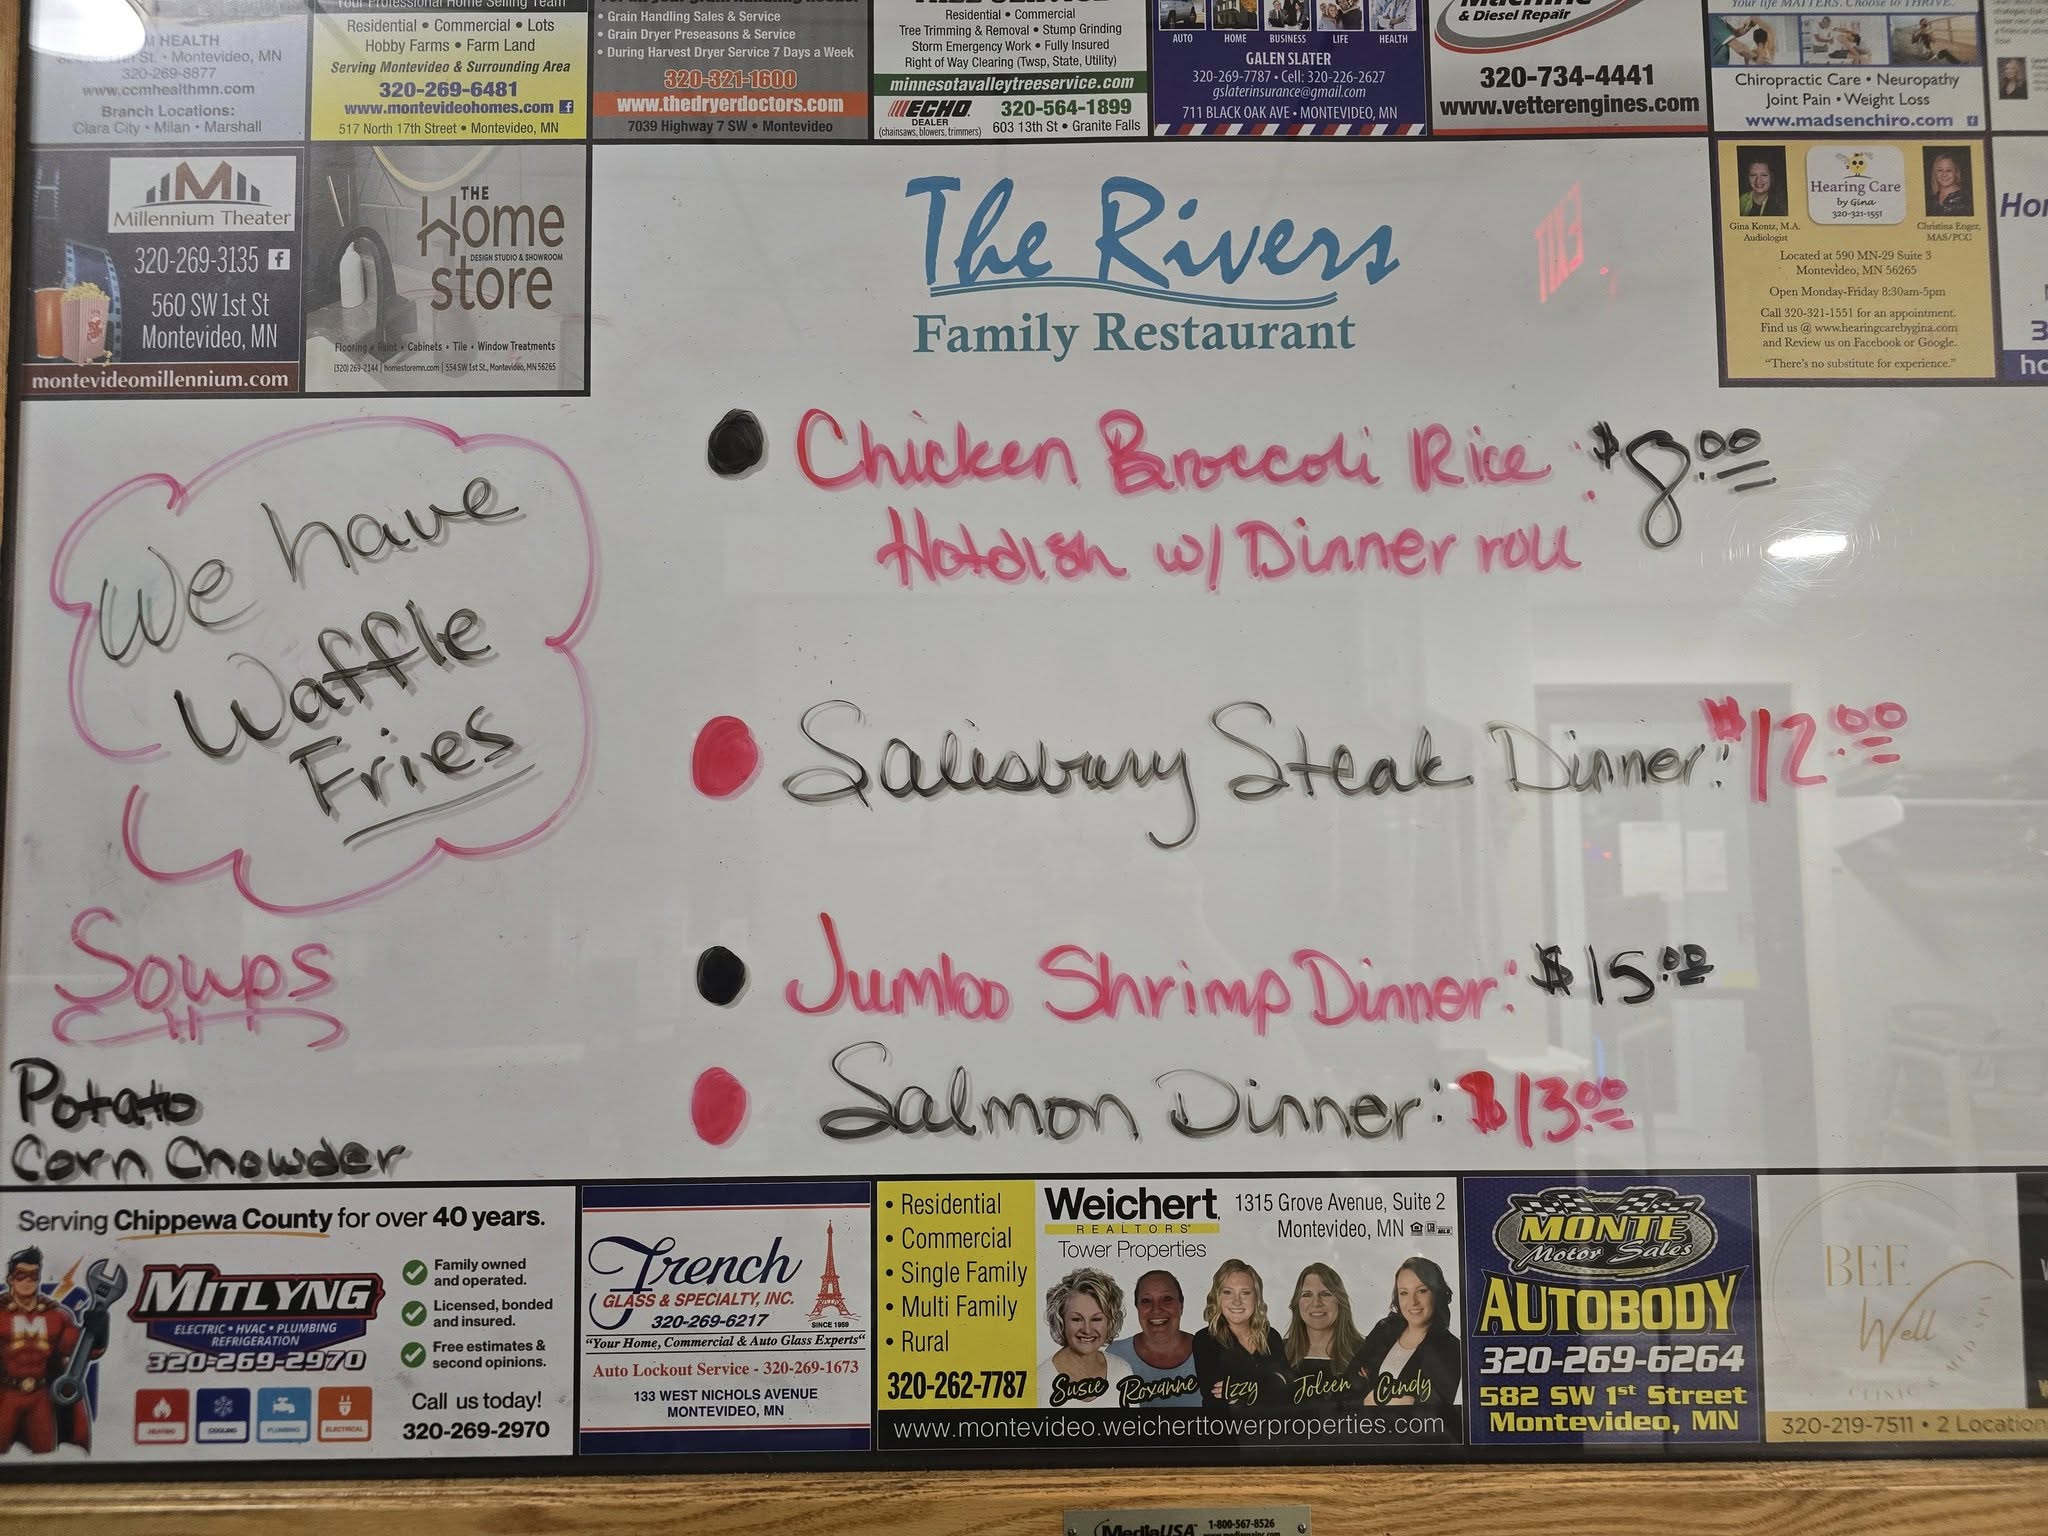 Your Professional Home Selling Team
Residential • Commercial • Lots
Hobby Farms • Farm Land
Serving Montevideo & Surrounding Area
320-269-6481
www.montevideohomes.com
517 North 17th Street • Montevideo, MN
HEALTH
St. • Montevideo, MN
320-269-8877
www.ccmhealthmn.com
Branch Locations:
Clara City • Milan • Marshall
• Grain Handling Sales & Service
• Grain Dryer Preseasons & Service
• During Harvest Dryer Service 7 Days a Week
320-321-1600
www.thedryerdoctors.com
7039 Highway 7 SW • Montevideo
Residential • Commercial
Tree Trimming & Removal • Stump Grinding
Storm Emergency Work • Fully Insured
Right of Way Clearing (Twsp, State, Utility)
minnesotavalleytreeservice.com
ECHO
DEALER
(chainsaws, blowers, trimmers)
320-564-1899
603 13th St • Granite Falls
AUTO HOME BUSINESS LIFE HEALTH
GALEN SLATER
320-269-7787 • Cell: 320-226-2627
gslaterinsurance@gmail.com
711 BLACK OAK AVE • MONTEVIDEO, MN
Machine
& Diesel Repair
320-734-4441
www.vetterengines.com
Your life MATTERS. Choose to THRIVE.
Chiropractic Care • Neuropathy
Joint Pain • Weight Loss
www.madsenchiro.com
M
Millennium Theater
320-269-3135
560 SW 1st St
Montevideo, MN
montevideomillennium.com
THE
Home
DESIGN STUDIO & SHOWROOM
store
Flooring • Paint • Cabinets • Tile • Window Treatments
(320) 269-2144 | homestoremn.com | 554 SW 1st St., Montevideo, MN 56265
The Rivers
Family Restaurant
Hearing Care
by Gina
320-321-1551
Gina Kontz, M.A.
Audiologist
Christina Enger,
MAS/PCC
Located at 590 MN-29 Suite 3
Montevideo, MN 56265
Open Monday-Friday 8:30am-5pm
Call 320-321-1551 for an appointment.
Find us @ www.hearingcarebygina.com
and Review us on Facebook or Google.
"There's no substitute for experience."
We have
Waffle
Fries
Soups
Potato
Corn Chowder
• Chicken Broccoli Rice : $8.00
Hotdish w/ Dinner roll
• Salisbury Steak Dinner: $12.00
• Jumbo Shrimp Dinner: $15.00
• Salmon Dinner: $13.00
Serving Chippewa County for over 40 years.
M
MITLYNG
ELECTRIC • HVAC • PLUMBING
REFRIGERATION
320-269-2970
HEATING COOLING PLUMBING ELECTRICAL
Family owned
and operated.
Licensed, bonded
and insured.
Free estimates &
second opinions.
Call us today!
320-269-2970
French
GLASS & SPECIALTY, INC.
320-269-6217
SINCE 1959
"Your Home, Commercial & Auto Glass Experts"
Auto Lockout Service - 320-269-1673
133 WEST NICHOLS AVENUE
MONTEVIDEO, MN
• Residential
• Commercial
• Single Family
• Multi Family
• Rural
320-262-7787
Weichert
REALTORS
Tower Properties
1315 Grove Avenue, Suite 2
Montevideo, MN
Susie Roxanne Izzy Joleen Cindy
www.montevideo.weicherttowerproperties.com
MONTE
Motor Sales
AUTOBODY
320-269-6264
582 SW 1st Street
Montevideo, MN
BEE
Well
320-219-7511 • 2 Location
MediaUSA 1-800-567-8526